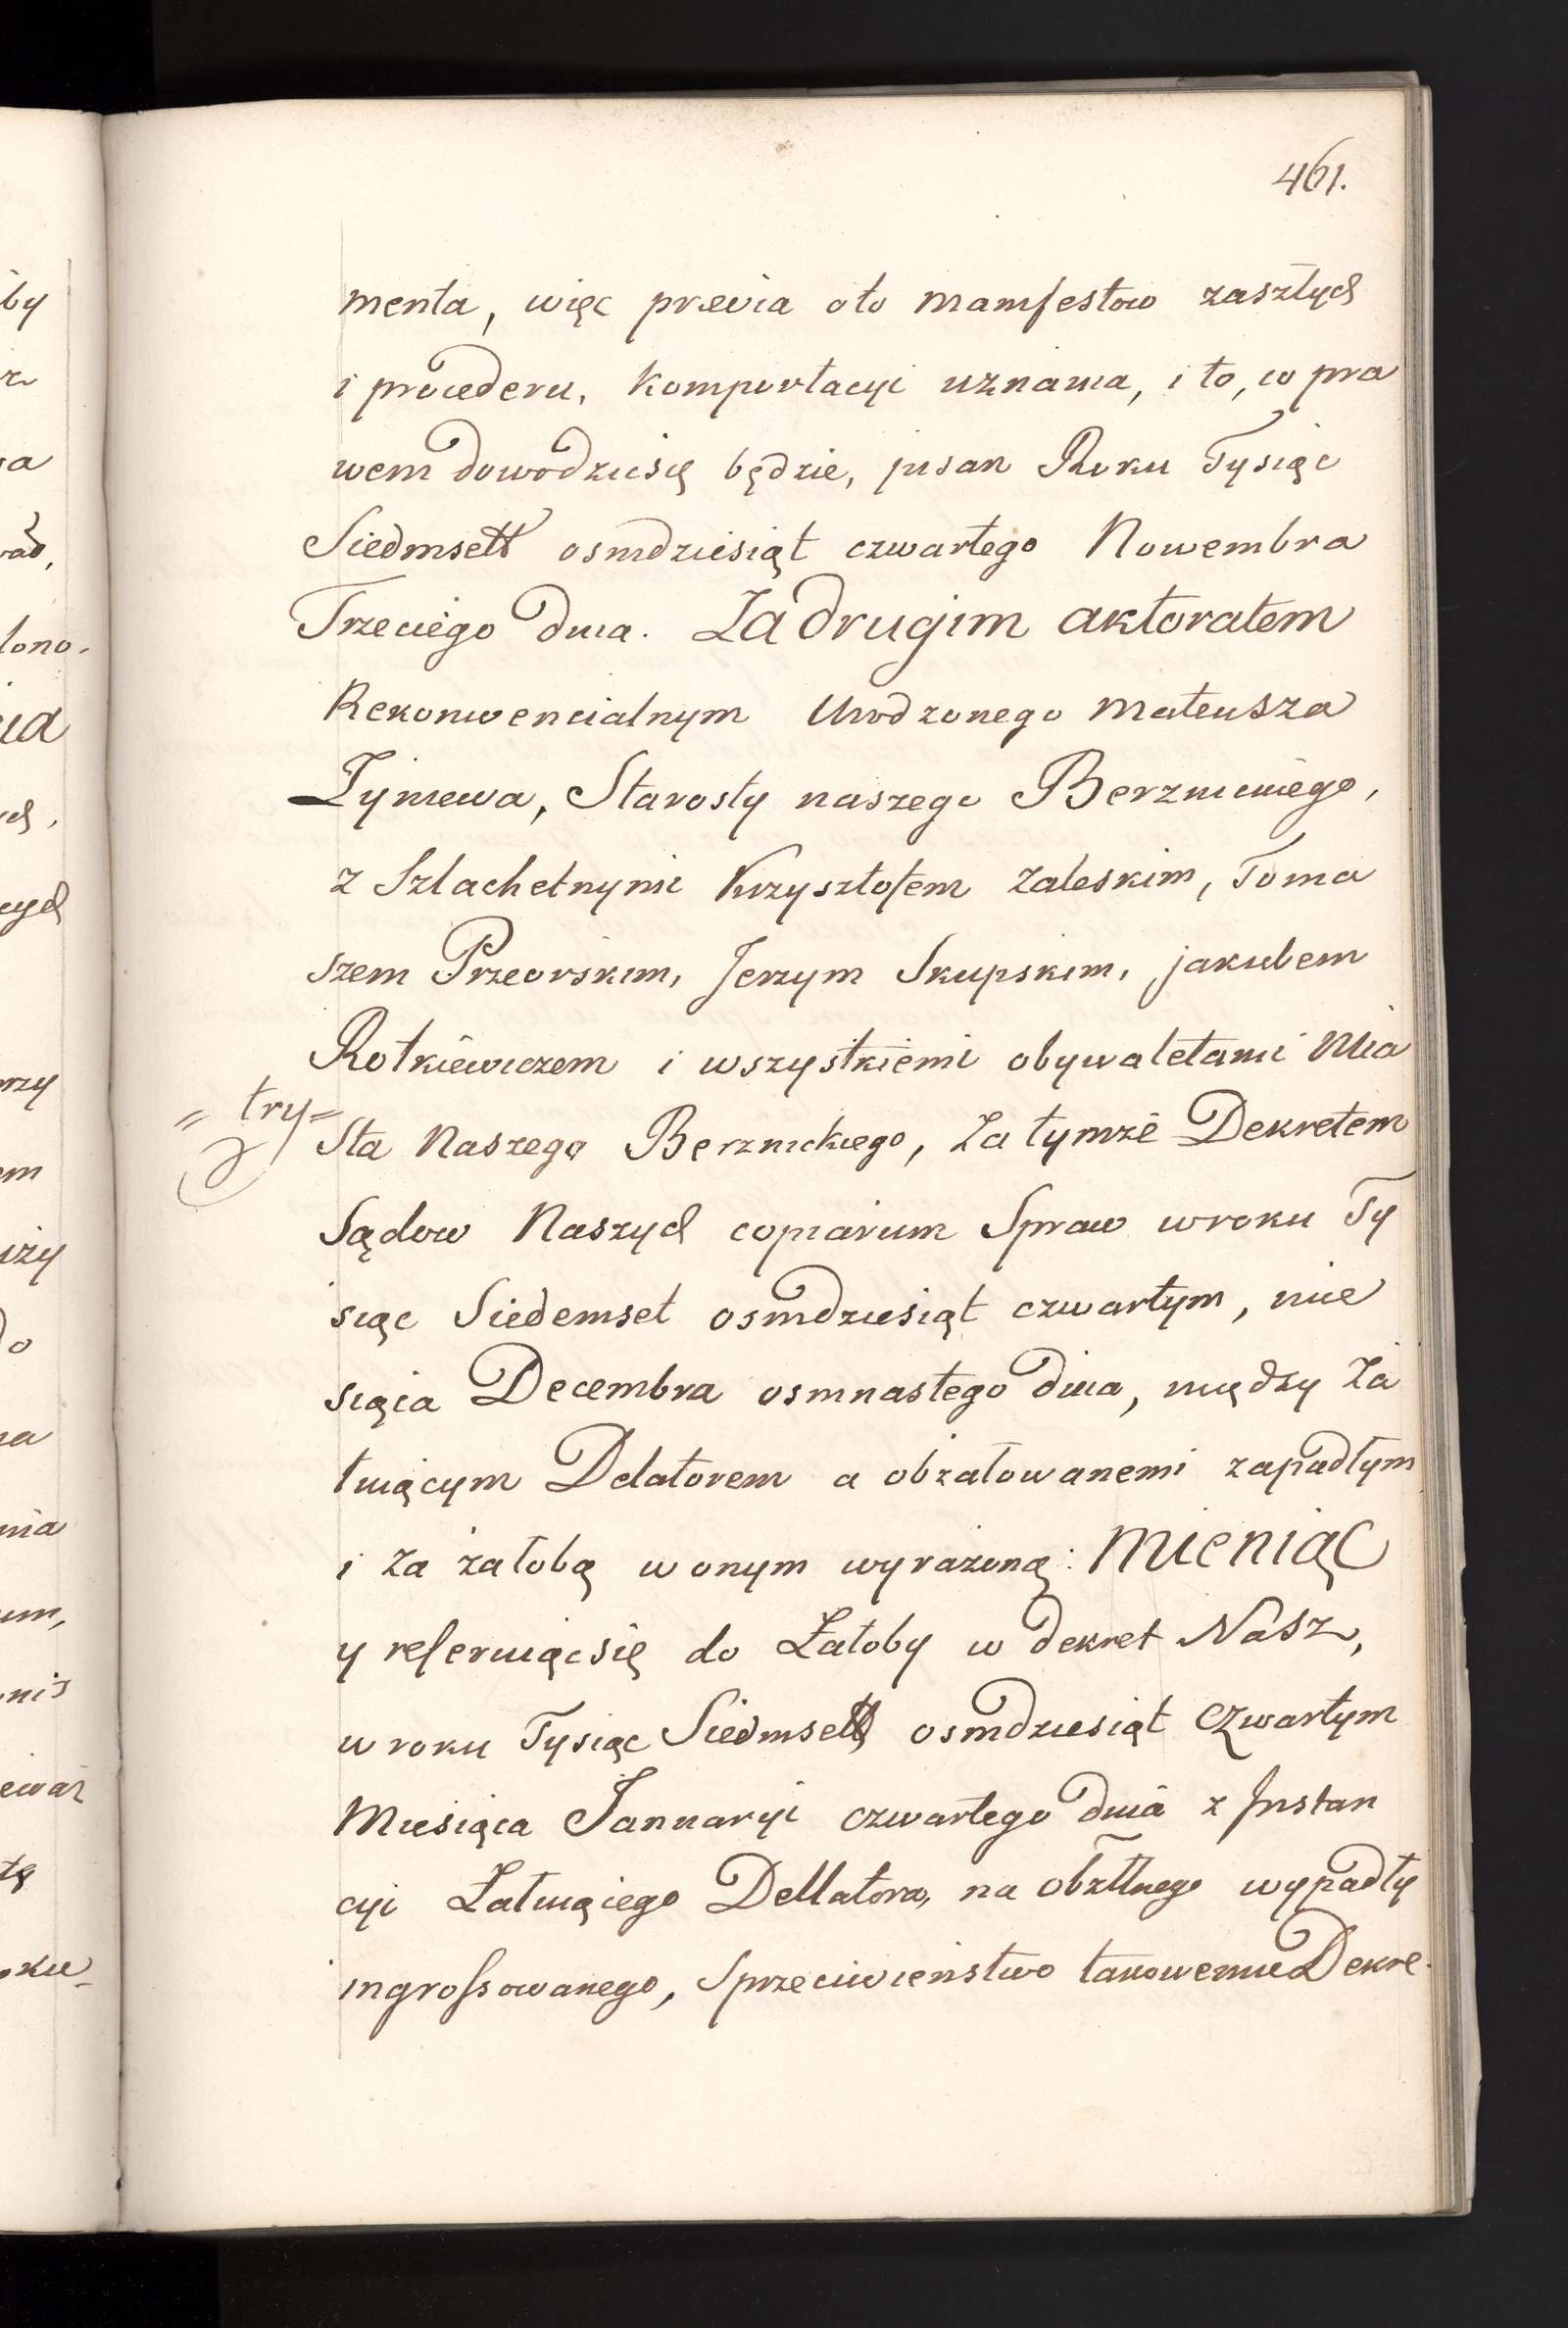 461.
menta, więc prævia oto manifestow zaszłych
i procederu, komportacyi uznania, i to, co pra
wem dowodzić się będzie, pisan Roku Tysiąc
Siedmsett osmdziesiąt czwartego Nowembra
Trzeciego dnia. Za drugim aktoratem
Rekonwencialnym Urodzonego Mateusza
Żyniewa, Starosty naszego Berznickiego,
z Szlachetnymi Krzysztofem Zaleskim, Toma
szem Przeorskim, Jerzym Skupskim, jakubem
Rotkiewiczem i wszystkiemi obywaletami Mia
" try=
Sta Naszego Berznickiego, Za tymże Dekretem
Sądow Naszych copiarum Spraw w roku Ty
siąc Siedemset osmdziesiąt czwartym, mie
siąca Decembra osmnastego dnia, między Ża
łuiącym Delatorem a obżałowanemi zapadłym
i Za żałobą w onym wyrażoną: Mieniąc
y referuiąc się do Żałoby w dekret Nasz,
w roku Tysiąc Siedmsett osmdziesiąt czwartym
Miesiąca Januaryi czwartego dnia z Jnstan
cyi Żałuiącego Dellatora, na obżłłnego wypadły
ingrossowanego, Sprzeciwieństwo takowemu Dekre-
by
sa
lono.
ych
rzy
em
do
na
nia
um,
nis
ewaz